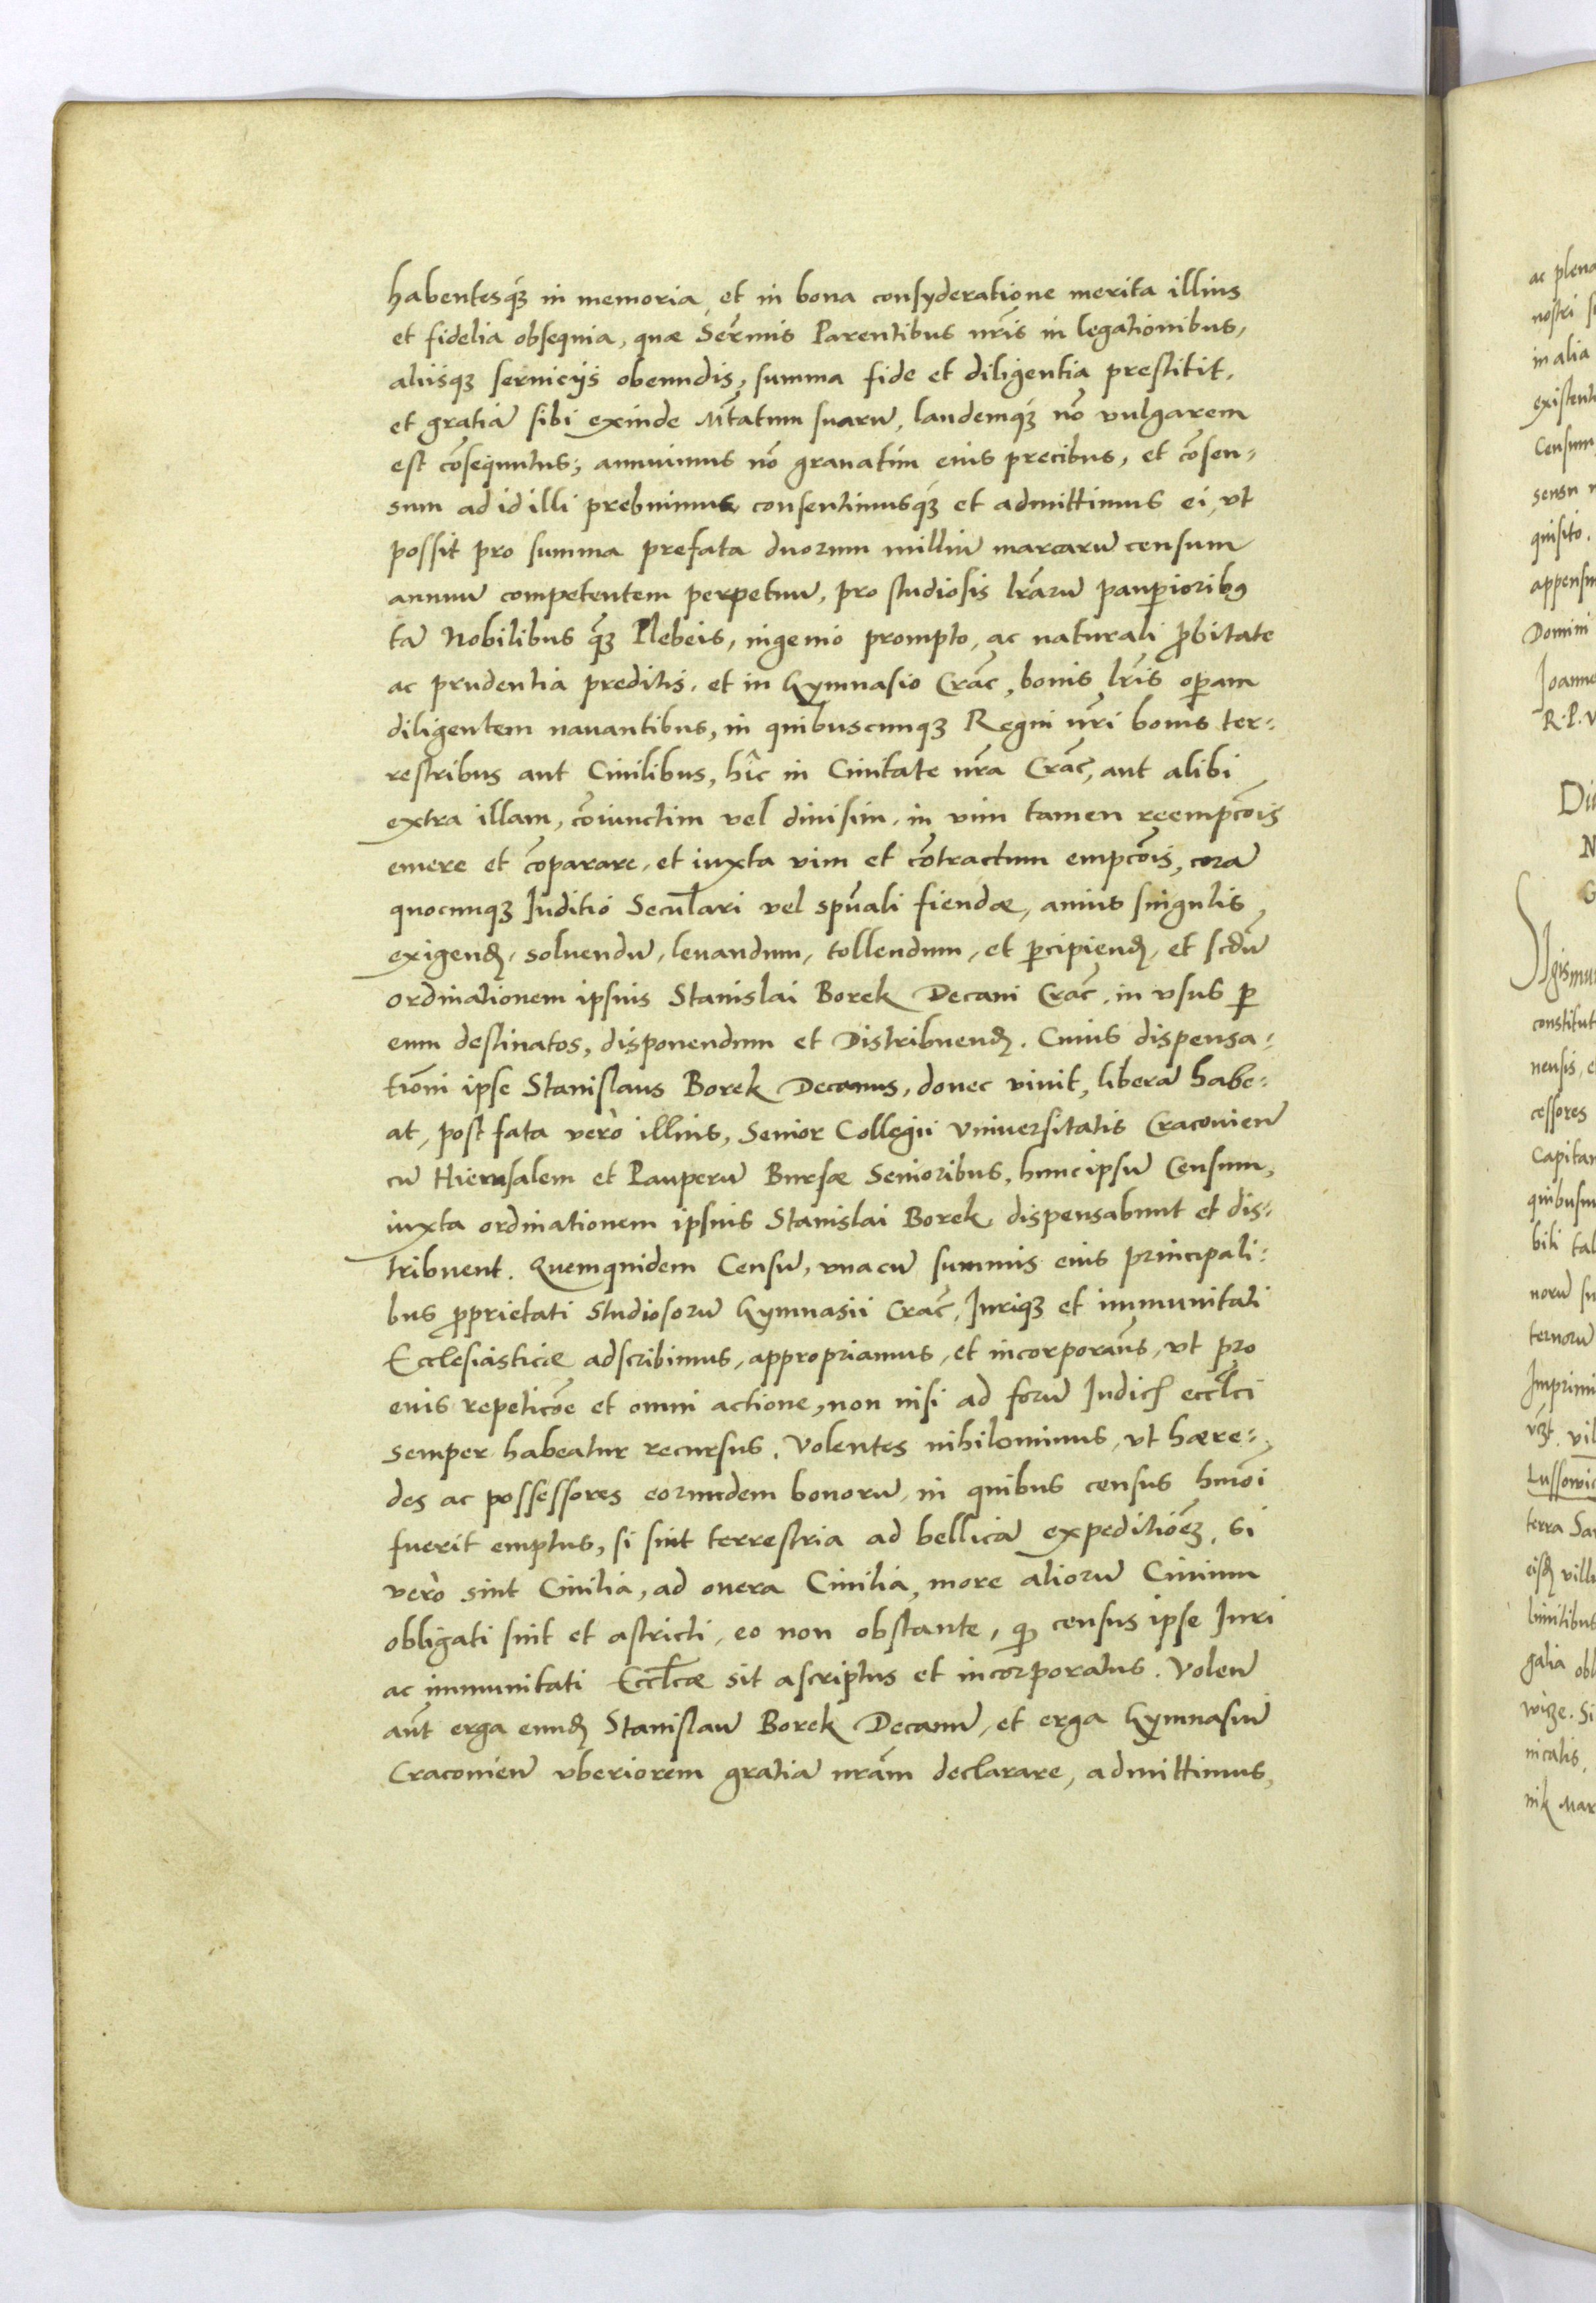 habentesq́ꝫ in memoria, et in bona consyderatione merita illius
et fidelia obsequia, quæ Serᷤmis Parentibus nr̃is in legationibus,
aliisqꝫ seruicijs obeundis, summa fide et diligentia prestitit,
et gratiã sibi exinde M̃tatum suarũ, laudemq́ꝫ nõ vulgarem
est cõsequutus; annuimus nõ grauatim eius precibus, et cõsen-
sum ad id illi prebuimus, consentimusq́ꝫ et admittimus ei, vt
possit pro summa prefata duorum milliũ marcarũ censum
annuũ competentem perpetuũ, pro studiosis lr̃arũ paup̱ioribꝰ
tã Nobilibus q̃ꝫ Plebeis, ingenio prompto, ac naturali ꝓbitate
ac prudentia preditis, et in Gymnasio Crac̃, bonis lr̃is op̱am
diligentem nauantibus, in quibuscunqꝫ Regni nr̃i bonis ter-
restribus aut Ciuilibus, hîc in Ciuitate nr̃a Crac̃, aut alibi
extra illam, cõiunctim vel diuisim, in vim tamen reempc̃õis
emere et cõparare, et iuxta vim et cõtractum empc̃õis, corã
quocunqꝫ Iuditio Seculari vel spũali fiendæ, annis singulis
exigendꝫ, soluendũ, leuandum, tollendum, et p̱cipiendꝫ, et scdũ
ordinationem ipsius Stanislai Borek Decani Crac̃, in vsus p̱
eum destinatos, disponendum et Distribuendꝫ. Cuius dispensa-
tiõni ipse Stanislaus Borek Decanus, donec viuit, liberã habe-
at, post fata verò illius, Senior Collegii Vniuersitatis Cracouieñ
cũ Hierusalem et Pauperũ Bursæ Senioribus, hunc ipsũ Censum,
iuxta ordinationem ipsius Stanislai Borek, dispensabunt et dis-
tribuent. Quemquidem Censũ, vnacũ summis eius principali-
bus ꝓprietati Studiosorũ Gymnasii Crac̃, Iuriqꝫ et immunitati
Ecclesiasticæ adscribimus, appropriamus, et incorporam̃s, vt pro
eius repetic̃õe et omni actione, non nisi ad forũ Iudicꝭ eccl̃ci
semper habeatur recursus. Volentes nihilominus, vt hære-
des ac possessores eorundem bonorũ, in quibus census hm̃õi
fuerit emptus, si sint terrestria ad bellicã expeditiõeꝫ, si
verò sint Ciuilia, ad onera Ciuilia, more aliorũ Ciuium
obligati sint et astricti, eo non obstante, ꝙ census ipse Iuri
ac immunitati Eccl̃cæ sit ascriptus et incorporatus. Voleñ
aũt erga eundꝫ Stanislaũ Borek Decanũ, et erga Gymnasiũ
Cracouieñ vberiorem gratiã nrãm declarare, admittimus,
ac plena
nostri
in alia
existent
Censum
sensu
quisito.
appensu
Domini
Joanne
R. P. V
Igismu
constitut
nensis, e
cessores
Capitan
quibusu
bili tal
norũ su
ternorũ
Imprimi
vil
Lussowic
terra Sa
limitibus
galia obl
nicalis
nik Mar